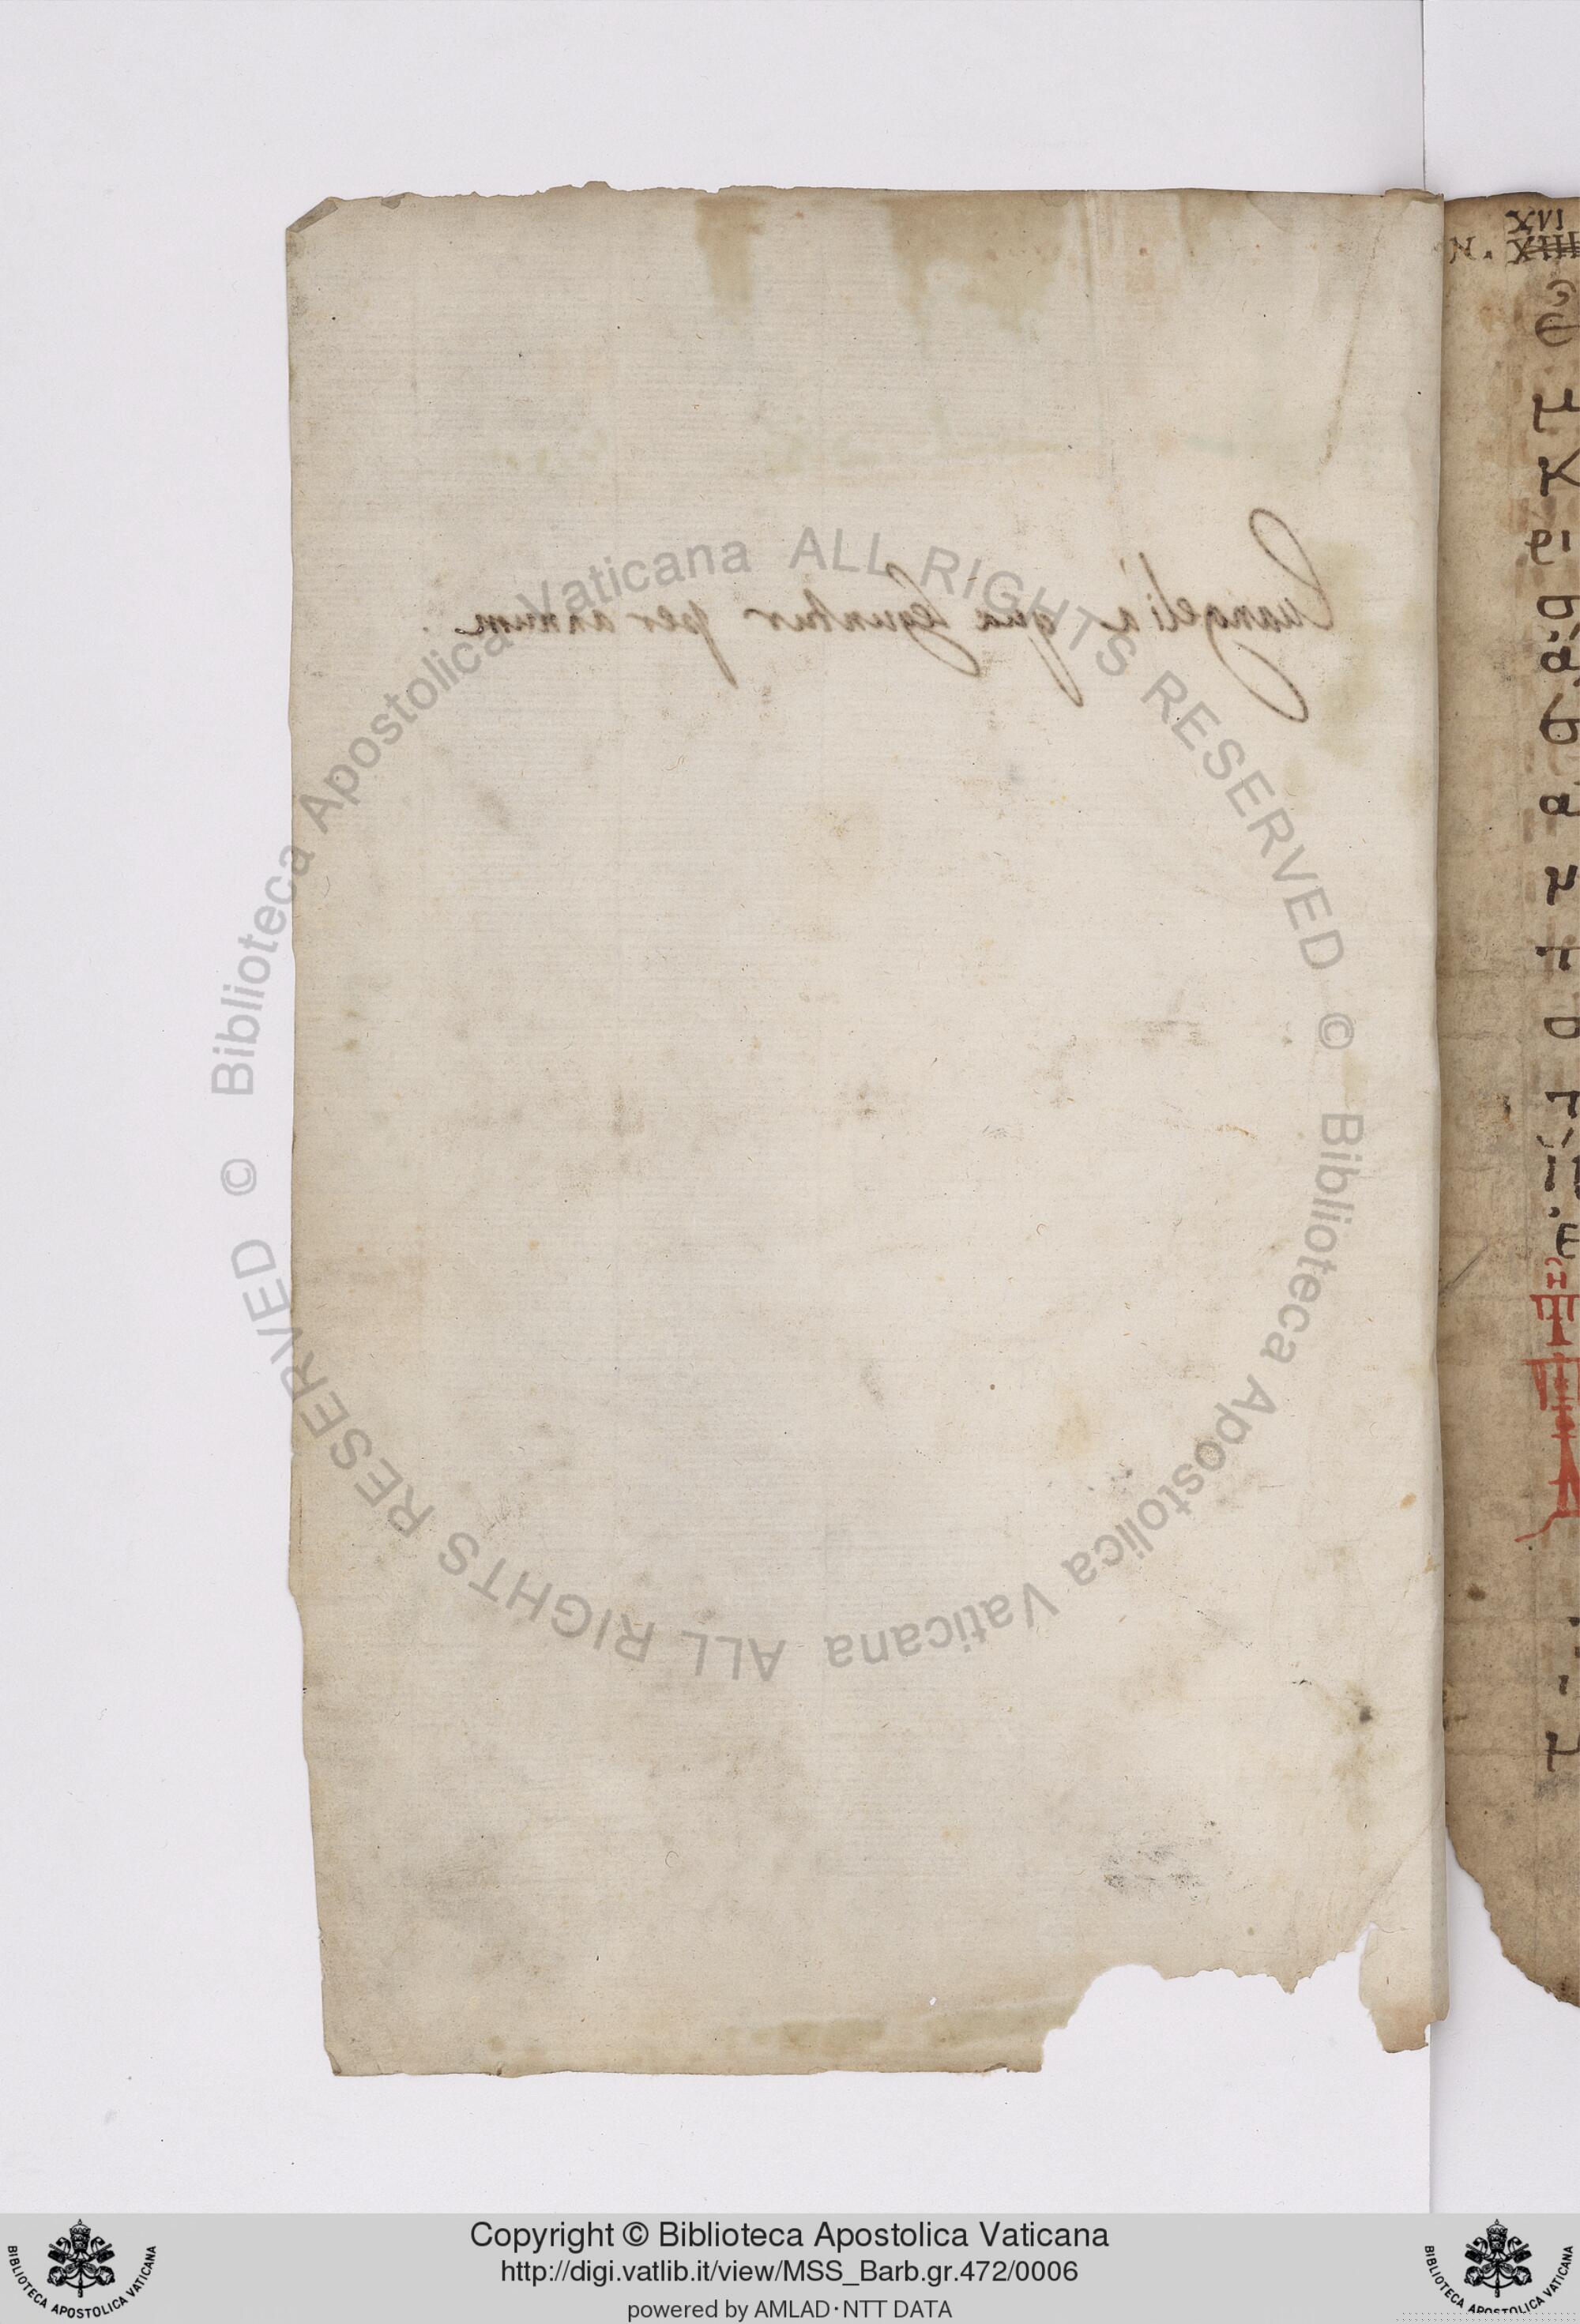 Euangelia quæ leguntur per annum.
XVI
N. XIIII
ἐ
μ
κ
ει
σ
ἁ
β
α
μ
σ
μ
Biblioteca Apostolica Vaticana ALL RIGHTS RESERVED ©
Biblioteca Apostolica Vaticana ALL RIGHTS RESERVED ©
Copyright © Biblioteca Apostolica Vaticana
http://digi.vatlib.it/view/MSS_Barb.gr.472/0006
powered by AMLAD·NTT DATA
BIBLIOTECA APOSTOLICA VATICANA
BIBLIOTECA APOSTOLICA VATICANA